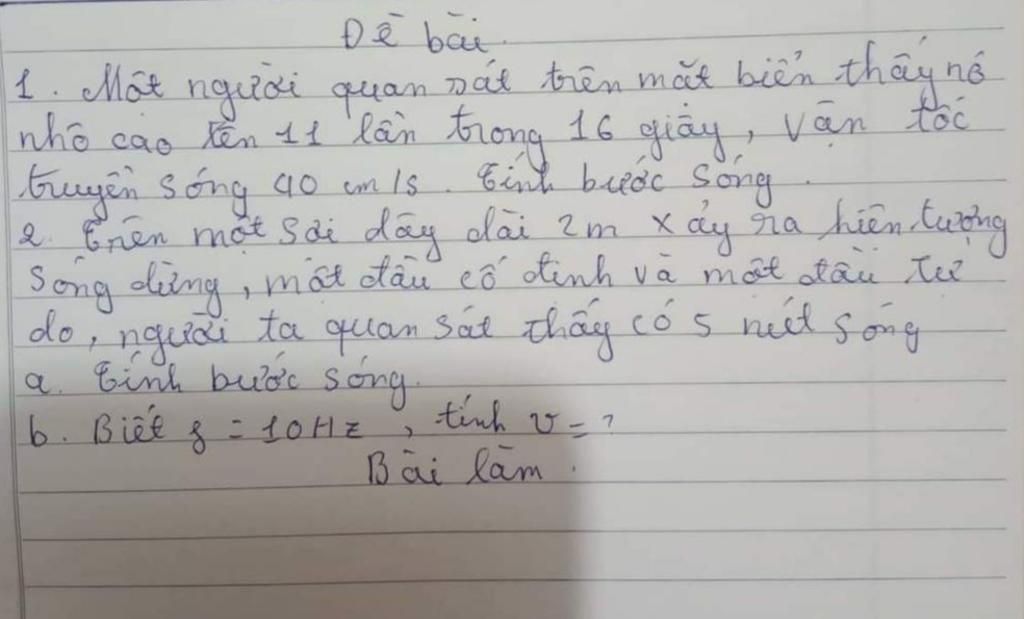 Đề bài.
1. Một người quan sát trên mặt biển thấy nó
nhô cao lên 11 lần trong 16 giây, vận tốc
truyền sóng 40 cm/s. Tính bước sóng.
2. Trên một sợi dây dài 2m xảy ra hiện tượng
sóng dừng, một đầu cố định và một đầu tự
do, người ta quan sát thấy có 5 nút sóng
a. Tính bước sóng.
b. Biết f = 10Hz, tính v = ?
Bài làm.